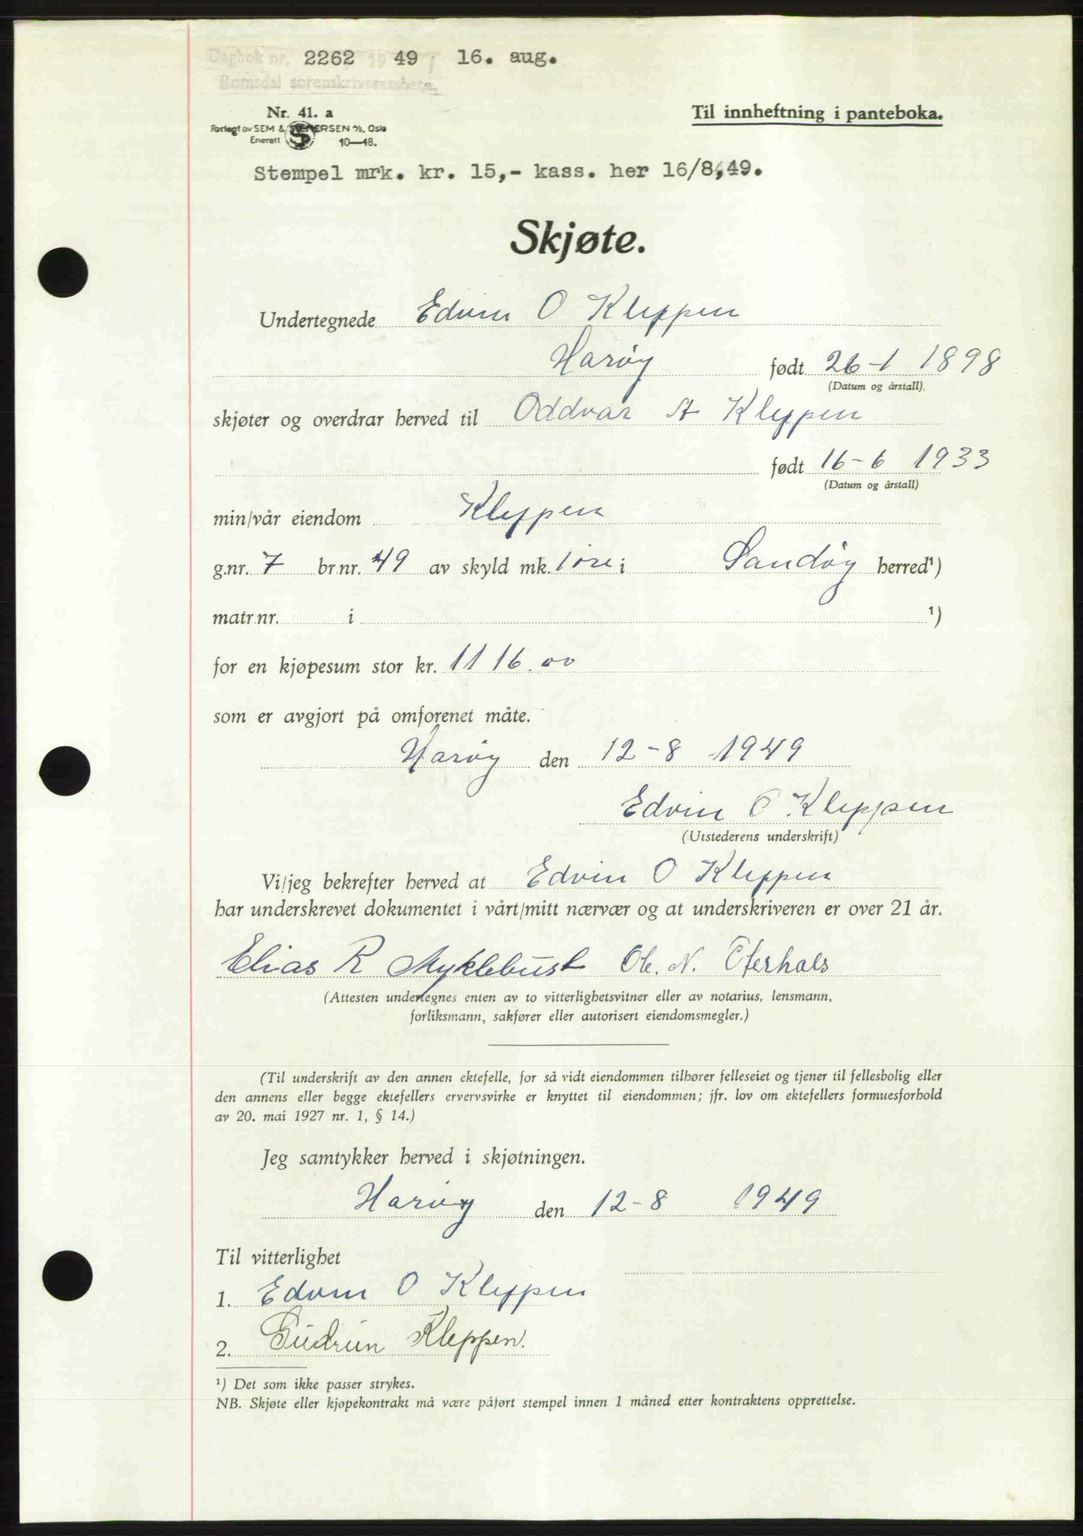 Dagbok nr. 2262 19 49 16. aug.
Romsdal sorenskriverembete.
Nr. 41. a
Til innheftning i panteboka.
Forlagt av SEM & STENERSEN A/S, Oslo
Enerett 10—48.
Stempel mrk. kr. 15,- kass. her 16/8,49.
Skjøte.
Undertegnede Edvin O Kleppen
Harøy født 26-1 1898
(Datum og årstall).
skjøter og overdrar herved til Oddvar A Kleppen
født 16-6 1933
(Datum og årstall)
min/vår eiendom Kleppen
g.nr. 7 br nr. 49 av skyld mk. 1 øre i Sandøy herred¹)
matr.nr. i ¹)
for en kjøpesum stor kr. 1116.00
som er avgjort på omforenet måte.
Harøy den 12-8 1949
Edvin O Kleppen
(Utstederens underskrift)
Vi/jeg bekrefter herved at Edvin O Kleppen
har underskrevet dokumentet i vårt/mitt nærvær og at underskriveren er over 21 år.
Elias R Myklebust Ole. N. Oterhals
(Attesten undertegnes enten av to vitterlighetsvitner eller av notarius, lensmann,
forliksmann, sakfører eller autorisert eiendomsmegler.)
(Til underskrift av den annen ektefelle, for så vidt eiendommen tilhører felleseiet og tjener til fellesbolig eller
den annens eller begge ektefellers ervervsvirke er knyttet til eiendommen; jfr. lov om ektefellers formuesforhold
av 20. mai 1927 nr. 1, § 14.)
Jeg samtykker herved i skjøtningen.
Harøy den 12-8 1949
Til vitterlighet
1. Edvin O Kleppen
2. Gudrun Kleppen.
¹) Det som ikke passer strykes.
NB. Skjøte eller kjøpekontrakt må være påført stempel innen 1 måned etter kontraktens opprettelse.